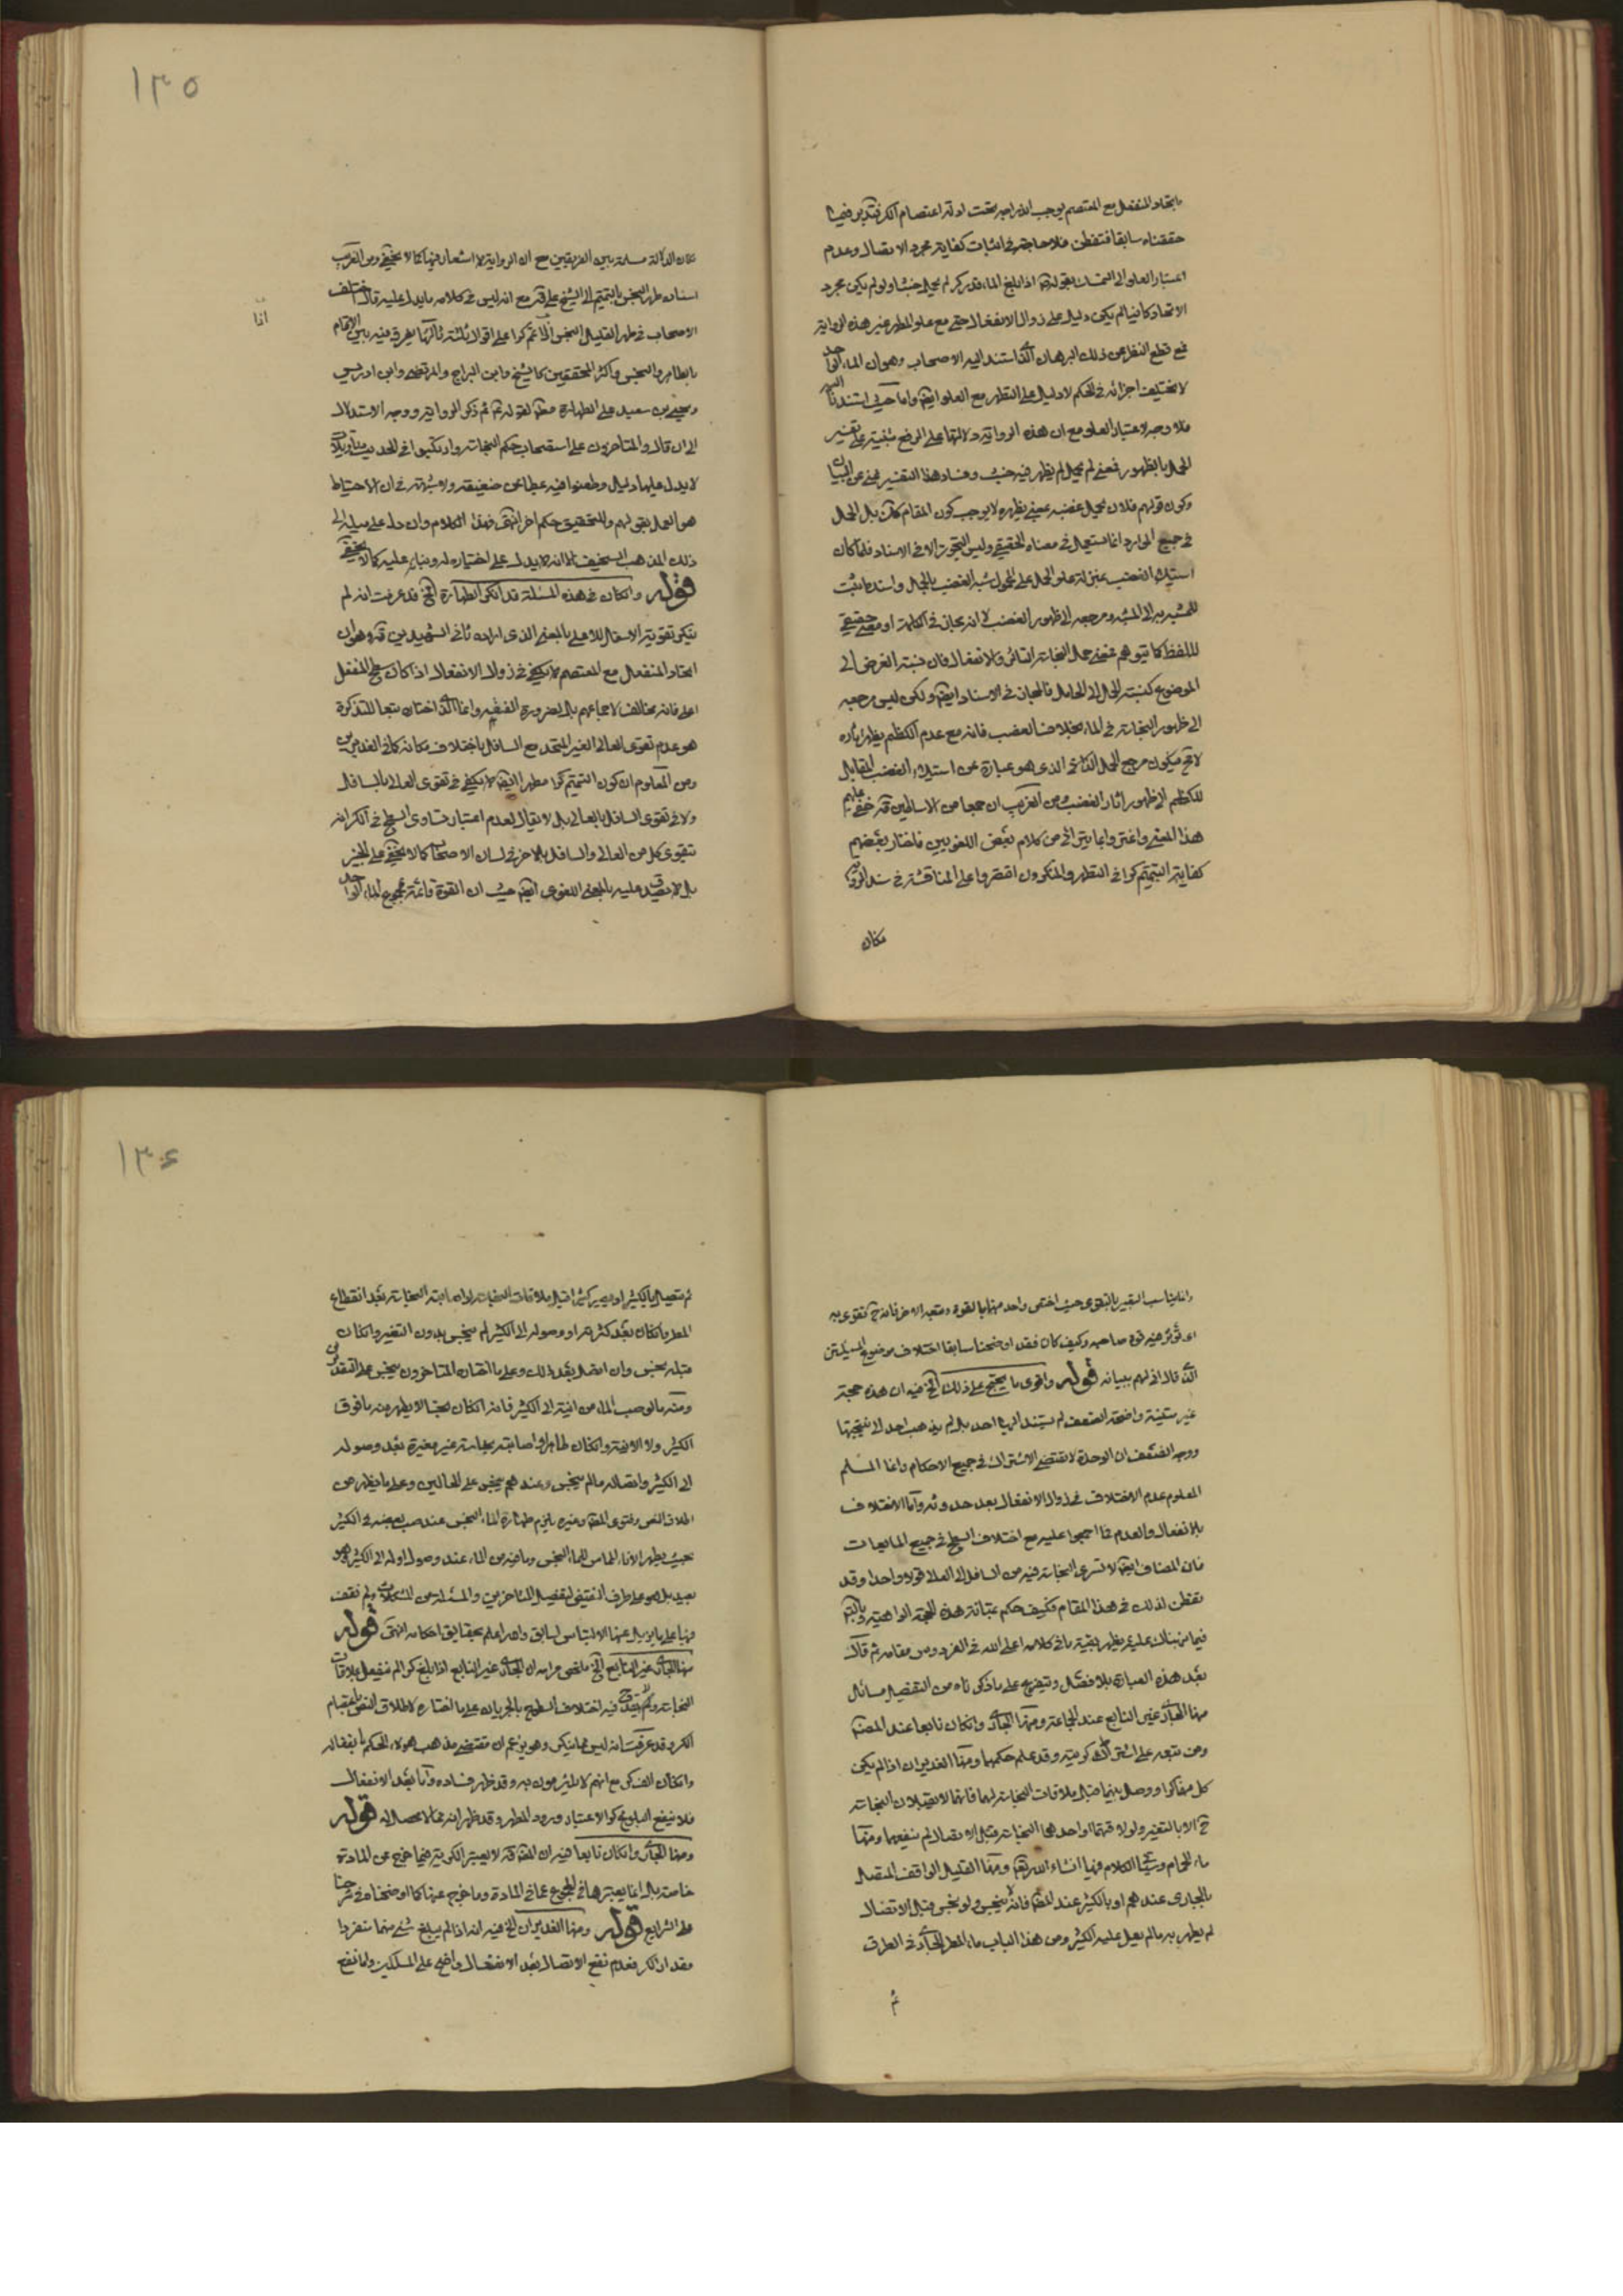 باتحاد المنفعل مع المعتصم يوجب اندراجه تحت ادلة اعتصام الكر فتدبر فيما
حققناه سابقا فتفطن فلا حاجة في اثبات كفاية مجرد الاتصال وعدم
اعتبار العلو الى التمسك بقولهم اذا بلغ الماء قدر كر لم يحمل خبثا ولو لم يكن مجرد
الاتحاد كافيا لم يكن دليل على زوال الانفعال حتى مع علو المطهر غير هذه الرواية
مع قطع النظر عن ذلك البرهان الذي استند اليه الاصحاب وهو ان الماء الواحد
لا يختلف اجزائه في الحكم لا دليل على التطهر مع العلو ايضا واما حتى استندنا اليه
فلا وجه لاعتبار العلو مع ان هذه الرواية دلالتها على الرفع مبنية على تفسير
الحمل بالظهور فمعنى لم يحمل لم يظهر فيه خبث وفساد هذا التفسير غني عن البيان
وكون قولهم فلان يحمل غضبه بمعنى يظهره لا يوجب كون المقام كك بل الحمل
في جميع الموارد انما استعمل في معناه الحقيقي وليس التجوز الا في الاسناد فلما كان
استيلاء الغضب بمنزلة علو الحمل على المحمول شبه الغضب بالحمال واسند ما يثبت
للمشبه به الى المشبه ومرجعه الى ظهور الغضب لا انه مجاز في الكلمة او معنى حقيقي
للفظ كما توهم فمعنى حمل النجاسة التاثر والانفعال فان نسبة العرض الى
الموضوع كنسبة الحمل الى الحامل فالمجاز في الاسناد ايضا ولكن ليس مرجعه
الى ظهور النجاسة في الماء بخلاف الغضب فانه مع عدم الكظم يظهر اثاره
لا مح فيكون مرجع الحمل الذي هو عبارة عن استيلاء الغضب المقابل
للكظم الى ظهور اثار الغضب ومن الغريب ان جمعا من الاساطين قد خفي عليهم
هذا المعنى واغتروا بما يترائى من كلام بعض اللغويين فاختار بعضهم
كفاية التتميم كرا في التطهر والمنكرون اقتصروا على المناقشة في سند الرواية
فكان
١٣٥
فكان الدلالة مسلمة بين الفريقين مع ان الرواية لا اشعار فيها كما لا يخفى ومن الغريب
اسناد طهر النجس بالتتميم الى الشيخ علي قد مع انه ليس في كلامه ما يدل عليه قال اختلف
الاصحاب في طهر القليل النجس اذا تمم كرا على اقوال ثلثة ثالثها يفرق فيه بين الاتمام
اذا
بالطاهر والنجس واكثر المحققين كالشيخ وابن البراج والمرتضى وابن ادريس
ويحيى بن سعيد على الطهارة مط لقوله ثم ذكر الرواية ووجه الاستدلال
الى ان قال والمتاخرون على استصحاب حكم النجاسة وارتكبوا في الحديث تاويلا
لا يدل عليها دليل وطعنوا فيه بمطاعن ضعيفة ولا شبهة في ان الاحتياط
هو العمل بقولهم وللتحقيق حكم اخر انتهى فهذا الكلام وان دل على ميله الى
ذلك المذهب السخيف الا انه لا يدل على اختياره له وبنائه عليه كما لا يخفى
قوله وان كان في هذه المسئلة قد انكر الطهارة الخ قد عرفت انه لم
ينكر تقوية الاسفل للاعلى بالمعنى الذي اراده ثاني الشهيدين قد وهو ان
اتحاد المنفعل مع المعتصم لا يكفي في زوال الانفعال اذا كان سطح المنفعل
اعلى فانه مخالف لاجماعهم بل لضرورة الفقه وانما الذي اختاره تبعا للتذكرة
هو عدم تقوى العالي الغير المتحد مع السافل باختلاف مكانه كما في الغديرين
ومن المعلوم ان كون التتميم كرا مطهرا ايضا لا يكفي في تقوى العالي بالسافل
ولا في تقوى السافل بالعالي بل لا يقال لعدم اعتبار تساوي السطح في الكر انه
تقوى كل من العالي والسافل بالاخر في لسان الاصحاب كما لا يخفى على الخبير
بل لا يصدق عليه بالمعنى اللغوي ايضا حيث ان القوة قائمة بمجموع الماء الواحد
وانما يناسب التعبير بالتقوى حيث اختص واحد منهما بالقوة وتبعه الاخر فانه ح تقوى به
اي تؤثر فيه قوة صاحبه وكيف كان فقد اوضحنا سابقا اختلاف موضوع المسئلتين
الذي قال اني لهم ببيانه قوله واقوى ما يحتج على ذلك الخ فيه ان هذه حجة
غير متينة واضحة الضعف لم يستند اليها احد بل لم يذهب احد الى نتيجتها
ووجه الضعف ان الوحدة لا تقتضي الاشتراك في جميع الاحكام وانما المسلم
المعلوم عدم الاختلاف في زوال الانفعال بعد حدوثه واما الاختلاف
بالانفعال والعدم فما اجمعوا عليه مع اختلاف السطح في جميع المايعات
فان المضاف ايضا لا تسرى النجاسة فيه من السافل الى العالي قولا واحدا وقد
تفطن لذلك في هذا المقام فكيف حكم بمتانة هذه الحجة الواهية وبالتدبر
فيما نبهناك عليه يظهر بقية ما في كلامه اعلى الله في الفردوس مقامه ثم قال
بعد هذه العبارة بلا فصل ويتفرع على ما ذكرناه من التفصيل مسائل
منها الجاري غير النابع عند الجماعة ومنها الجاري وان كان نابعا عند المصنف
ومن تبعه على اشتراك كريته وقد علم حكمهما ومنها الغديران اذا لم يكن
كل منهما كرا ووصل بينهما قبل ملاقات النجاسة لهما فانهما لا يقبلان النجاسة
ح الا بالتغير ولو لاقتهما او احدهما النجاسة قبل الاتصال لم ينفعهما ومنها
ماء الحمام وسيجئ الكلام فيها انشاء الله تعالى ومنها القليل الواقف المتصل
بالجاري عندهم او بالكثير عند المصنف فانه لا ينجس ولو نجس قبل الاتصال
لم يطهر به ما لم يعل عليه الكثير ومن هذا الباب ماء المطر الجاري في الطرق
ثم
١٣٦
ثم تتصل بالكثير او يصير كثيرا قبل ملاقات النجاسة اصابته النجاسة بعد انقطاع
المطر فان كان بعد كثرته او وصوله الى الكثير لم ينجس بدون التغير وان كان
قبله نجس وان اتصل بعد ذلك وعلى ما اختاره المتاخرون ينجس على التقديرين
ومنه ما لو صب الماء من انية الى الكثير فانه ان كان نجسا لا يطهر منه ما فوق
الكثير ولا الانية وان كان طاهرا واصابته نجاسة غير مغيرة بعد وصوله
الى الكثير واتصاله به لم ينجس وعندهم ينجس على الحالين وعلى ما يظهر من
اطلاق النص وفتوى المصنف وغيره يلزم طهارة الماء النجس عند صب بعضه في الكثير
بحيث يطهر الاناء المماس للماء النجس وما فيه من الماء عند وصول اوله الى الكثير وهو
بعيد بل هو على طرف النقيض لتفصيل المتاخرين والمسئلة من المشكلات ولم نقف
فيها على ما يزيل عنها الالتباس لسابق والله اعلم بحقايق احكامه انتهى قوله
منها الجاري غير النابع الخ ملخص مرامه ان الجاري غير النابع اذا بلغ كرا لم ينفعل بملاقات
النجاسة ولم يقدح فيه اختلاف السطوح بالجريان على ما اختاره لاطلاق النص باعتصام
الكر وقد عرفت انه ليس مما ينكر وهو يزعم ان مقتضى مذهب هؤلاء الحكم بانفعاله
وان كان الف كر مع انهم لا يلتزمون به وقد ظهر فساده واما بعد الانفعال
فلا ينفع البلوغ كرا لاعتبار ورود المطهر وقد ظهر انه مما لا محصل له قوله
ومنها الجاري وان كان نابعا فيه ان المصنف قد لا يعتبر الكرية فيما خرج عن المادة
خاصة بل انما يعتبرها في المجموع عما في المادة وما خرج عنها كما اوضحناه في شرحنا
على الشرايع قوله ومنها الغديران الخ فيه انه اذا لم يبلغ شئ منهما منفردا
مقدار الكر فعدم نفع الاتصال بعد الانفعال واضح على المسلكين ولما نفع